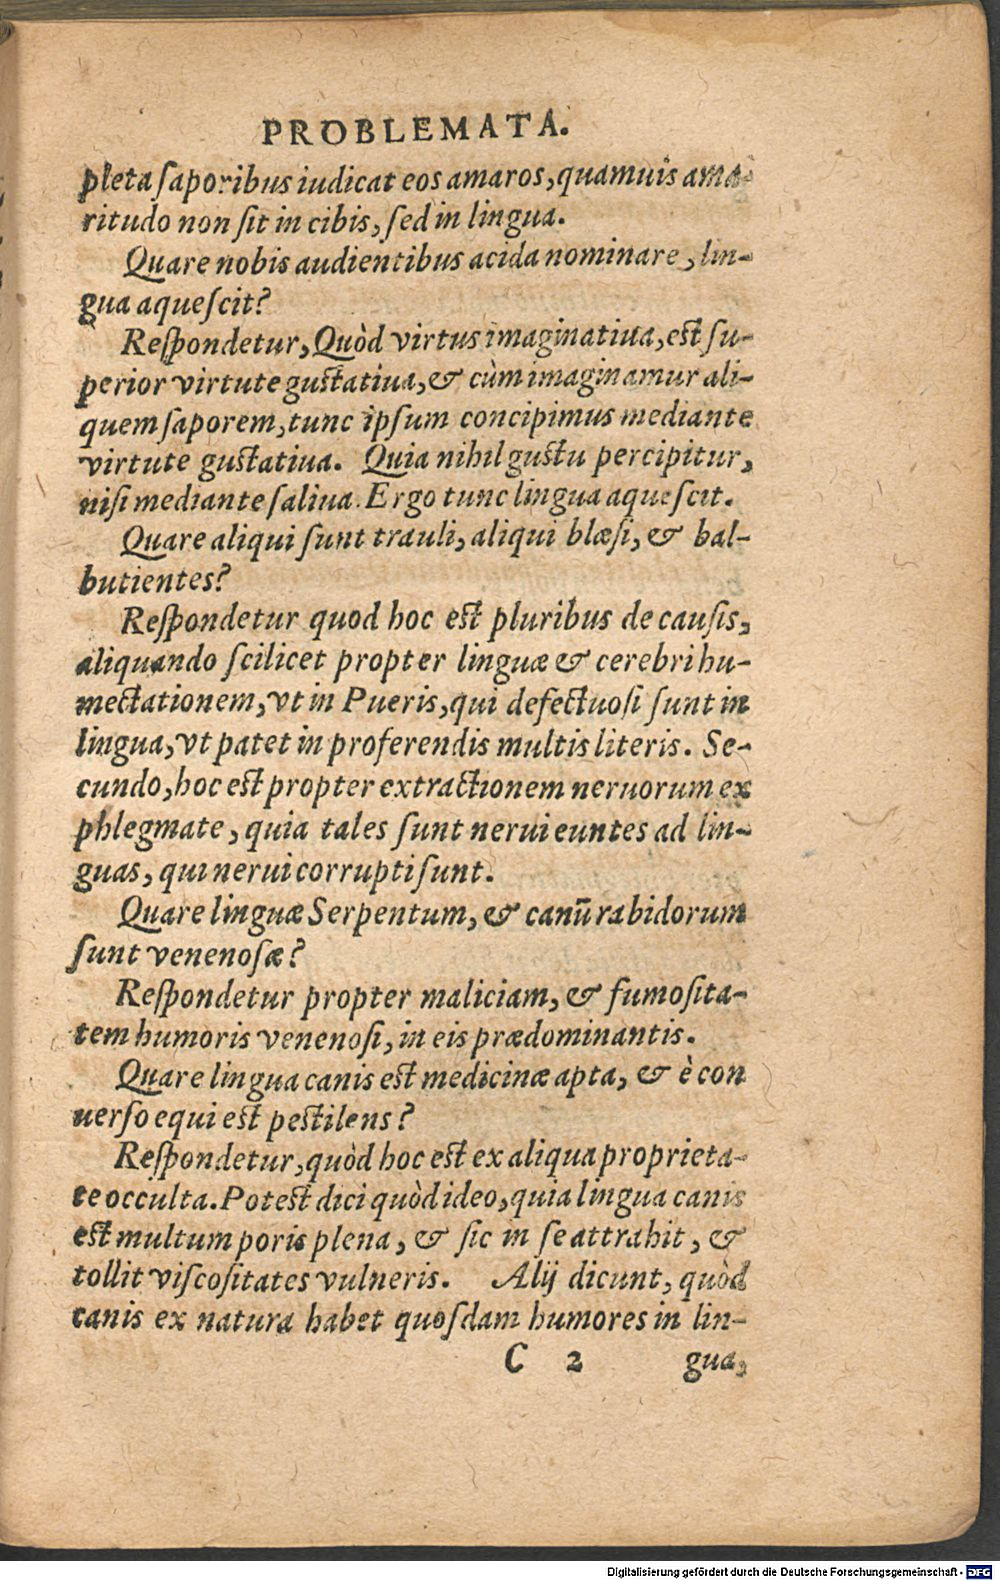 PROBLEMATA.
pleta ſaporibus iudicat eos amaros, quamuis ama-
ritudo non ſit in cibis, ſed in lingua.
Quare nobis audientibus acida nominare, lin-
gua aqueſcit?
Reſpondetur, Quòd virtus imaginatiua, eſt ſu-
perior virtute guſtatiua, & cùm imaginamur ali-
quem ſaporem, tunc ipſum concipimus mediante
virtute guſtatiua. Quia nihil guſtu percipitur,
niſi mediante ſaliua. Ergo tunc lingua aqueſcit.
Quare aliqui ſunt trauli, aliqui blæſi, & bal-
butientes?
Reſpondetur quod hoc eſt pluribus de cauſis,
aliquando ſcilicet propter linguæ & cerebri hu-
mectationem, vt in Pueris, qui defectuoſi ſunt in
lingua, vt patet in proferendis multis literis. Se-
cundo, hoc eſt propter extractionem neruorum ex
phlegmate, quia tales ſunt nerui euntes ad lin-
guas, qui nerui corrupti ſunt.
Quare linguæ Serpentum, & canũ rabidorum
ſunt venenoſæ?
Reſpondetur propter maliciam, & fumoſita-
tem humoris venenoſi, in eis prædominantis.
Quare lingua canis eſt medicinæ apta, & è con
uerſo equi eſt peſtilens?
Reſpondetur, quòd hoc eſt ex aliqua proprieta-
te occulta. Poteſt dici quòd ideo, quia lingua canis
eſt multum poris plena, & ſic in ſe attrahit, &
tollit viſcoſitates vulneris. Alij dicunt, quòd
canis ex natura habet quoſdam humores in lin-
C 2 gua,
Digitalisierung gefördert durch die Deutsche Forschungsgemeinschaft - DFG